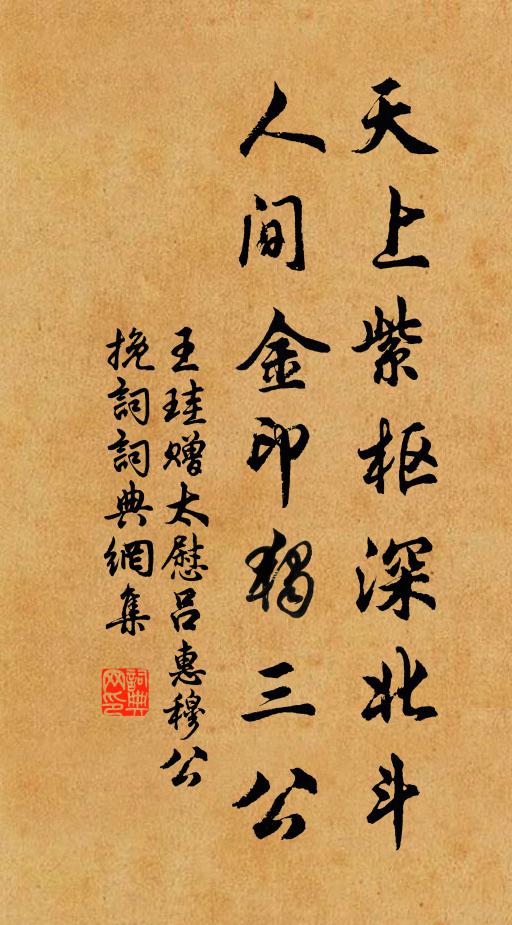 天上紫枢深北斗
人间金印独三公
王珪赠太慰吕惠穆公
挽詞詞典網集
詞典网印